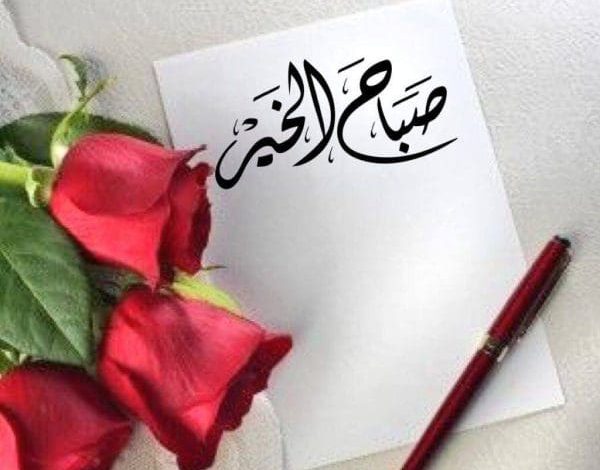 صَبَاحَ الخَيْر